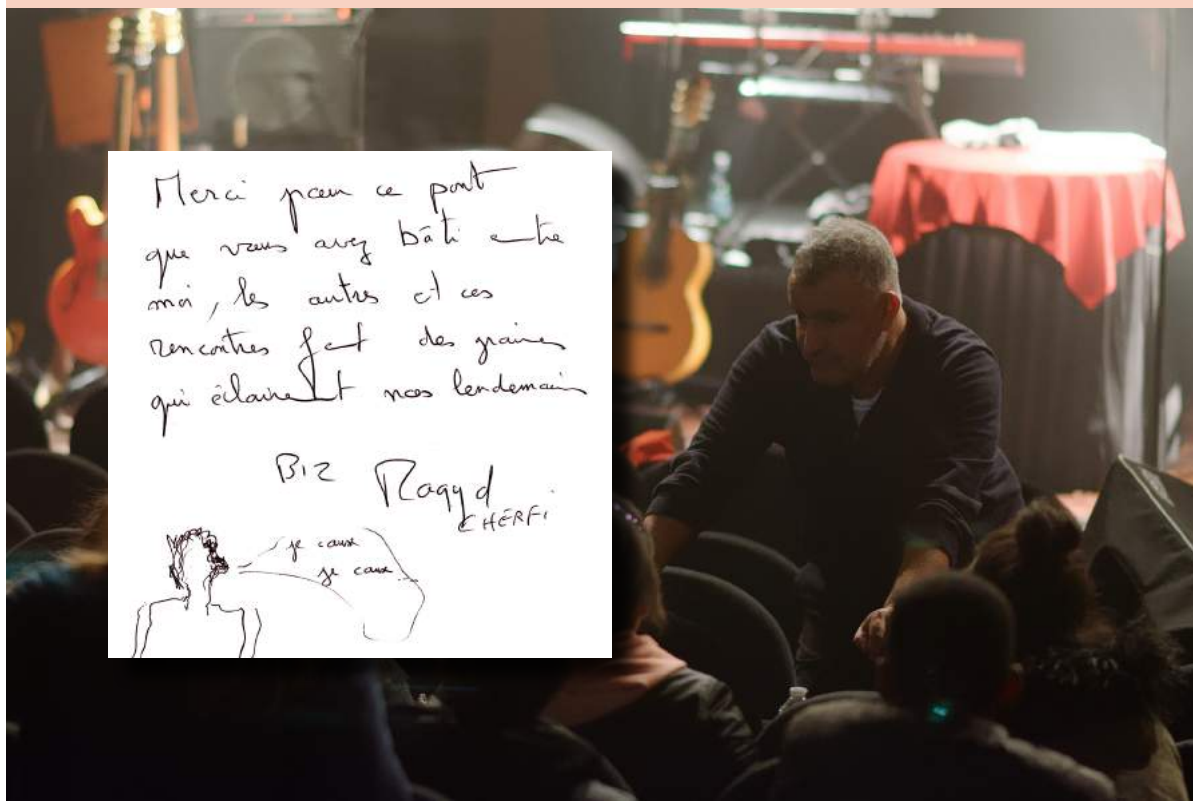 Merci pour ce pont
que vous avez bâti entre
moi, les autres et ces
rencontres font des graines
qui éclairent nos lendemains
BIZ Magyd
CHERFI
je cause
je cause...